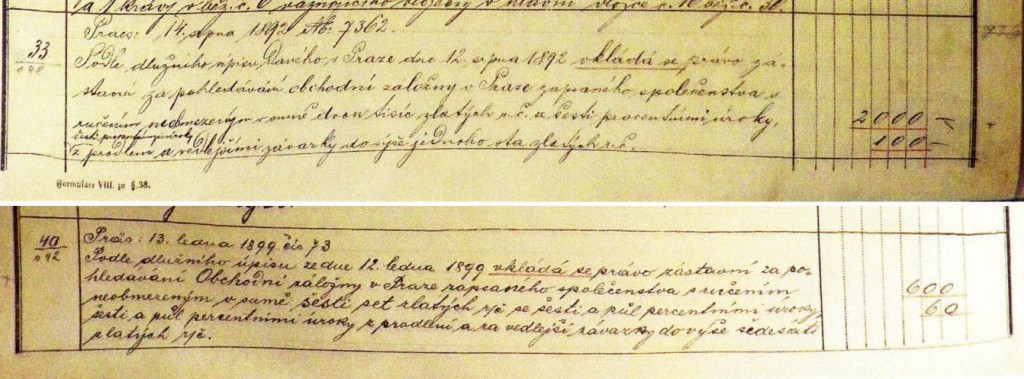 Praes: 14. srpna 1892 čís: 7362.
33
Podle dlužního úpisu v Praze dne 12. srpna 1892 vkládá se právo zá-
stavní za pohledávání obchodní záložny v Praze zapsaného společenstva s
ručením neobmezeným v sumě dvou tisíc zlatých r.č. s šesti procentními úroky,
2000 –
z prodlení a vedlejšími závazky do výše jednoho sta zlatých r.č.
100 –
Formulare VIII. zu §. 38.
40
Präs: 13. ledna 1899 čís 73
Podle dlužního úpisu ze dne 12. ledna 1899 vkládá se právo zástavní za po-
hledávání Obchodní záložny v Praze zapsaného společenstva s ručením
neobmezeným v sumě šesti set zlatých r/č se šesti a půl percentními úroky,
600
šesti a půl percentními úroky z prodlení a za vedlejší závazky do výše šedesáti
60
zlatých r/č.